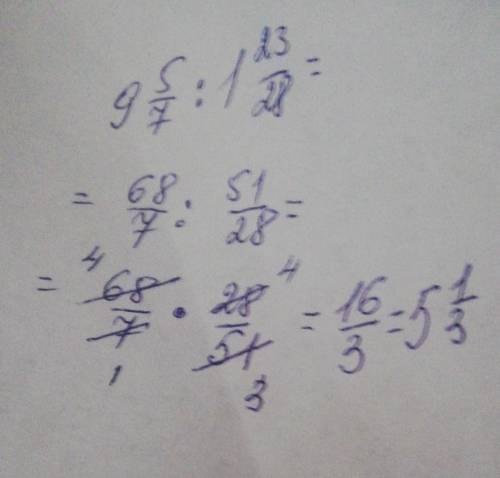 9 5/7 : 1 23/28 =
= 68/7 : 51/28 =
= 4 68/7 1 · 28/51 4 3 = 16/3 = 5 1/3